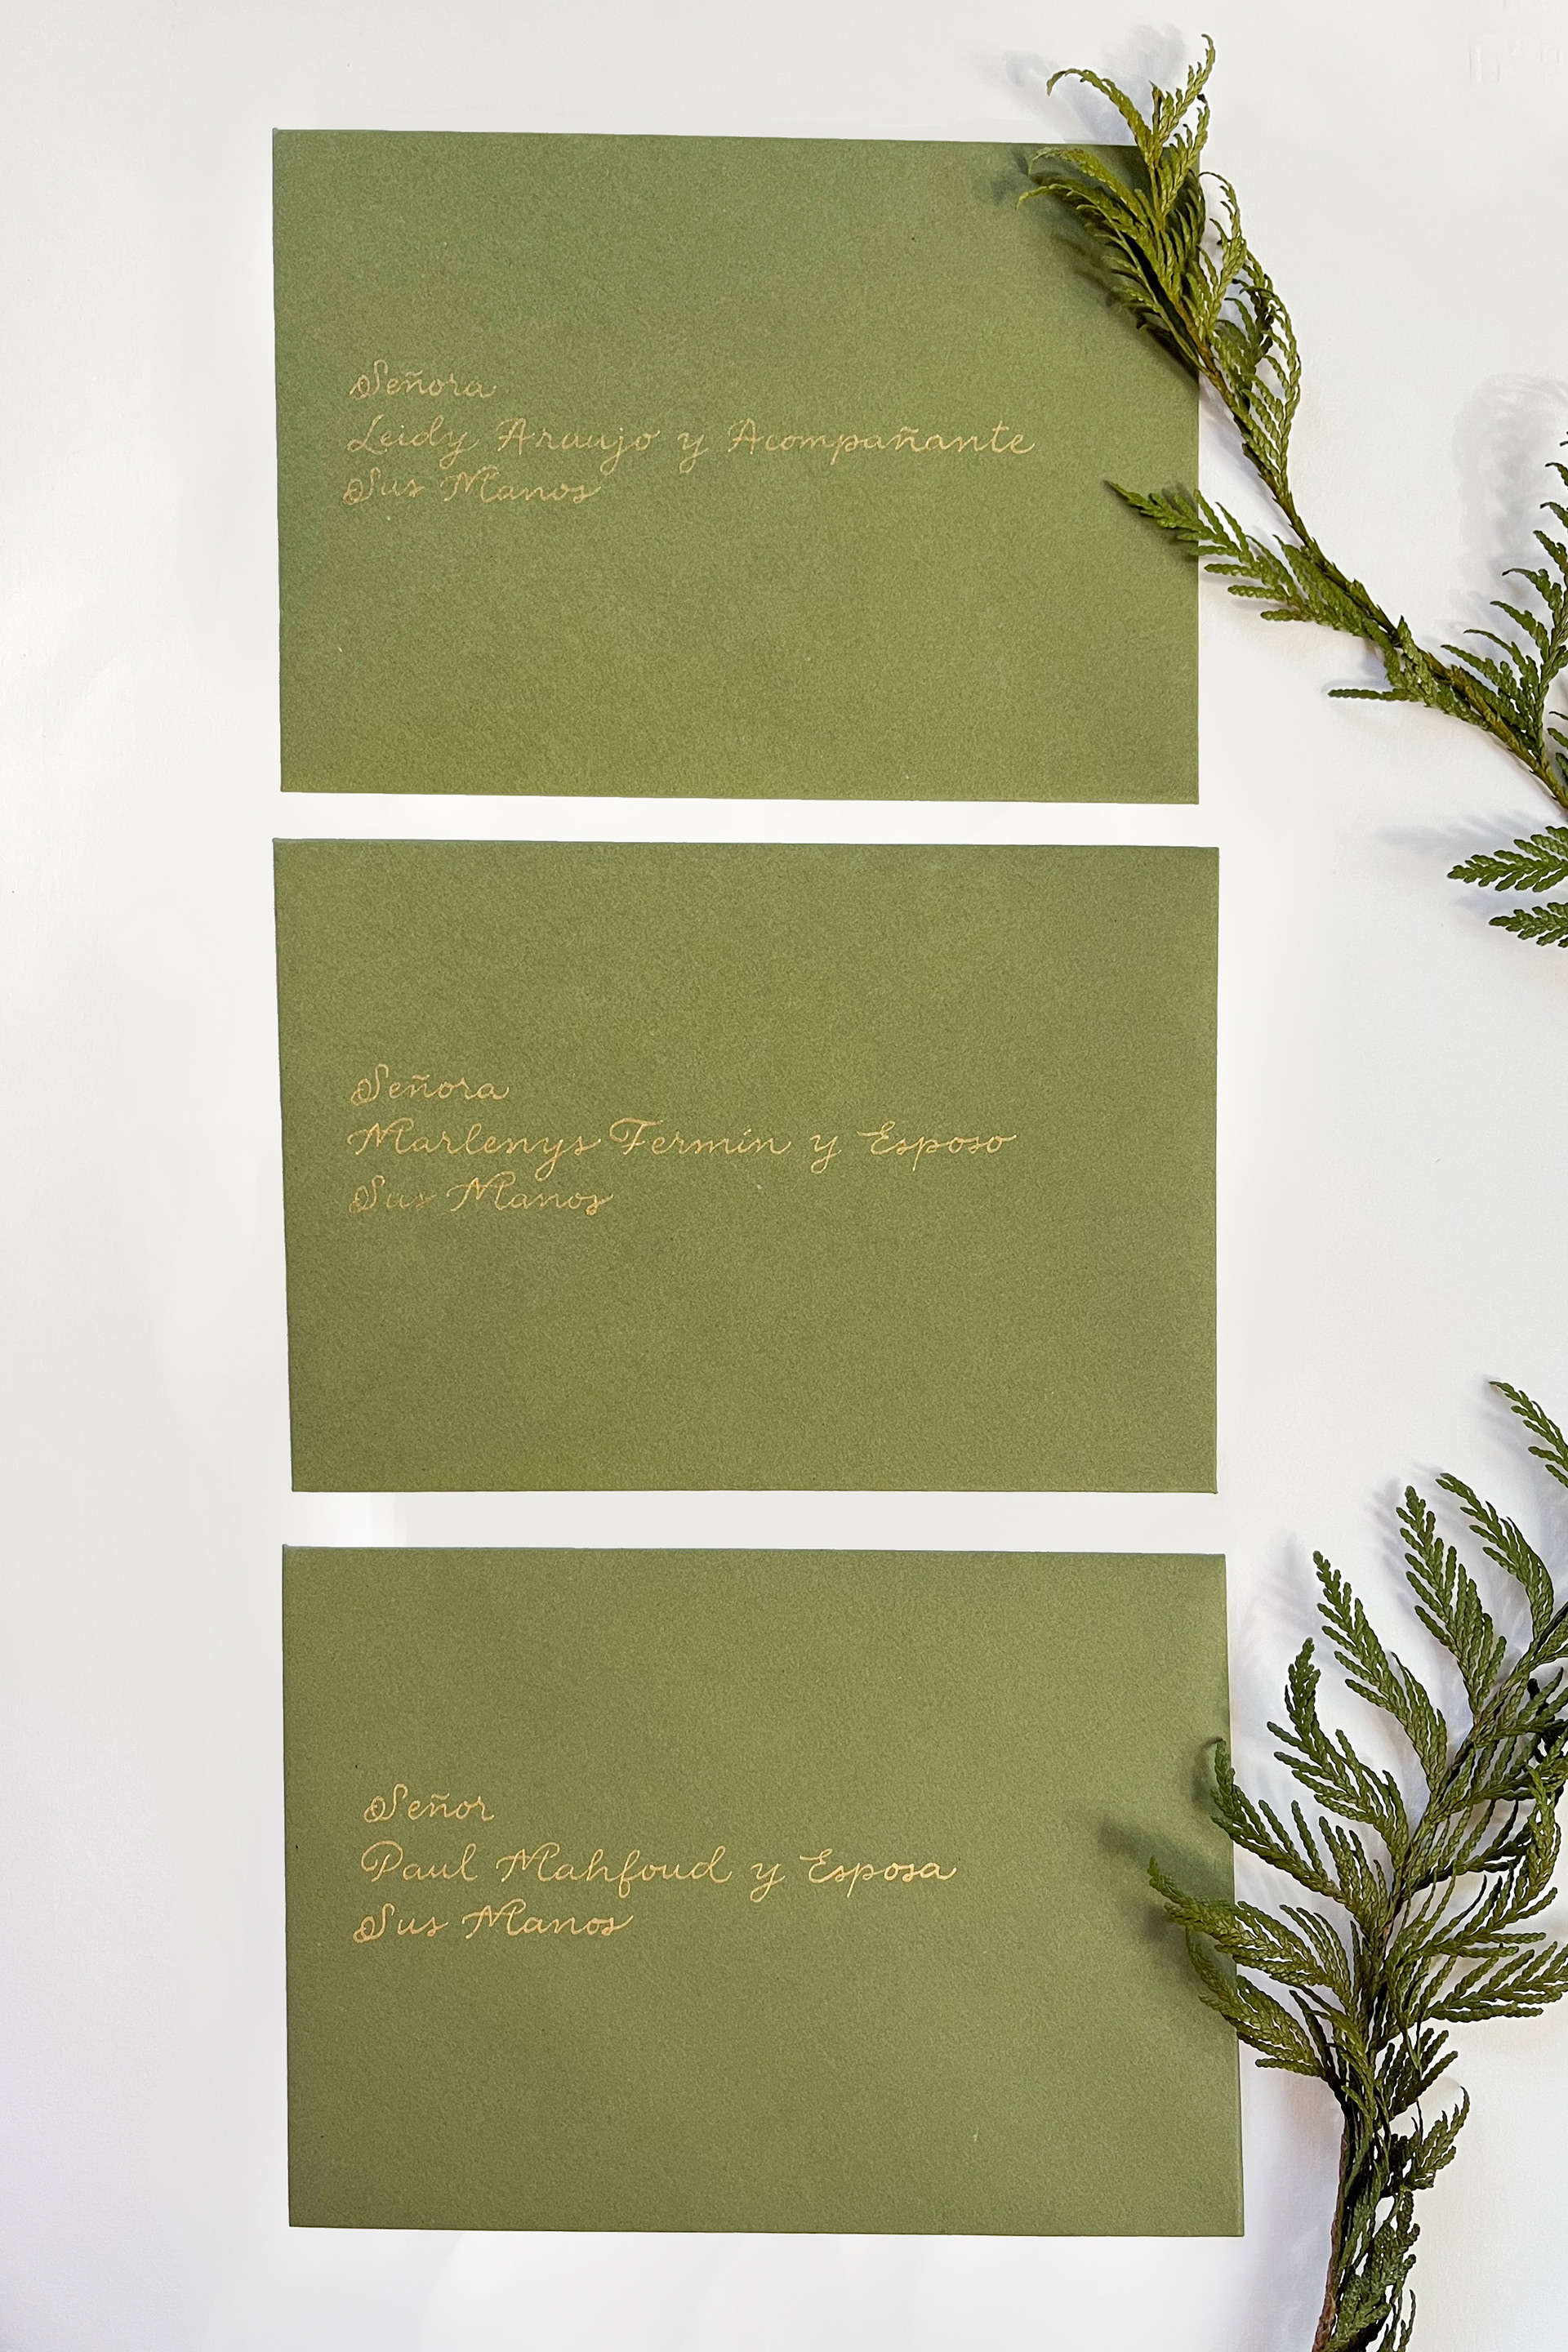 Señora
Leidy Araujo y Acompañante
Sus Manos
Señora
Marlenys Fermín y Esposo
Sus Manos
Señor
Paul Mahfoud y Esposa
Sus Manos